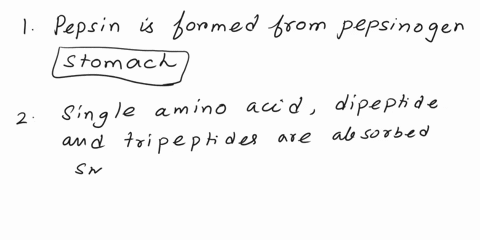 1. Pepsin is formed from pepsinogen
Stomach
2. Single amino acid, dipeptide
and tripeptides are absorbed
sm